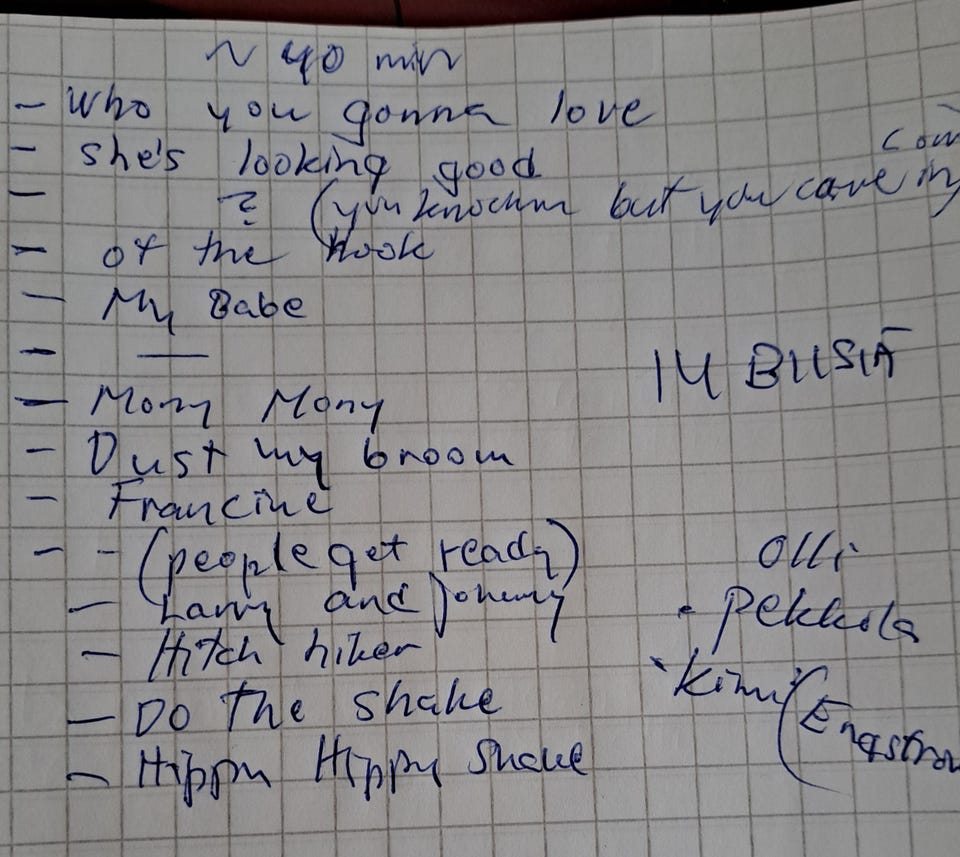 ~ 40 min
- Who you gonna love
- She's looking good
com
- ? ( but you came in
- of the hook
- My Babe
- —
14 BUSIA
- Mony Mony
- Dust my broom
- Francine
- - (people get ready)
Olli
- Larry and Johnny
• Pekkola
- Hitch hiker
• Kimi (Engstro
- Do the shake
- Hippy Hippy Shake